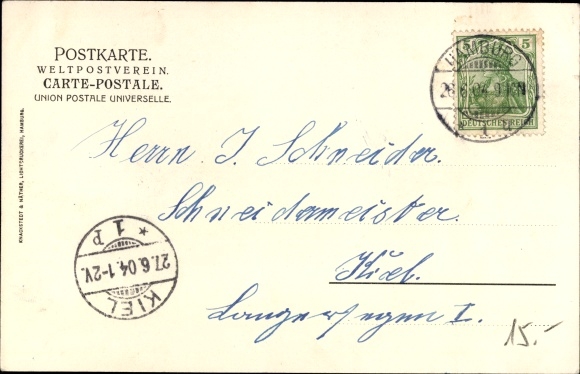 POSTKARTE.
WELTPOSTVEREIN.
CARTE-POSTALE.
UNION POSTALE UNIVERSELLE.
KNACKSTEDT & NÄTHER, LICHTDRUCKEREI, HAMBURG.
5 5
DEUTSCHES REICH
HAMBURG
6.04
1
Herrn J. Schneider.
Schneidermeister.
Kiel.
I.
KIEL
27.6.04.1-2V.
* 1 P
15.-